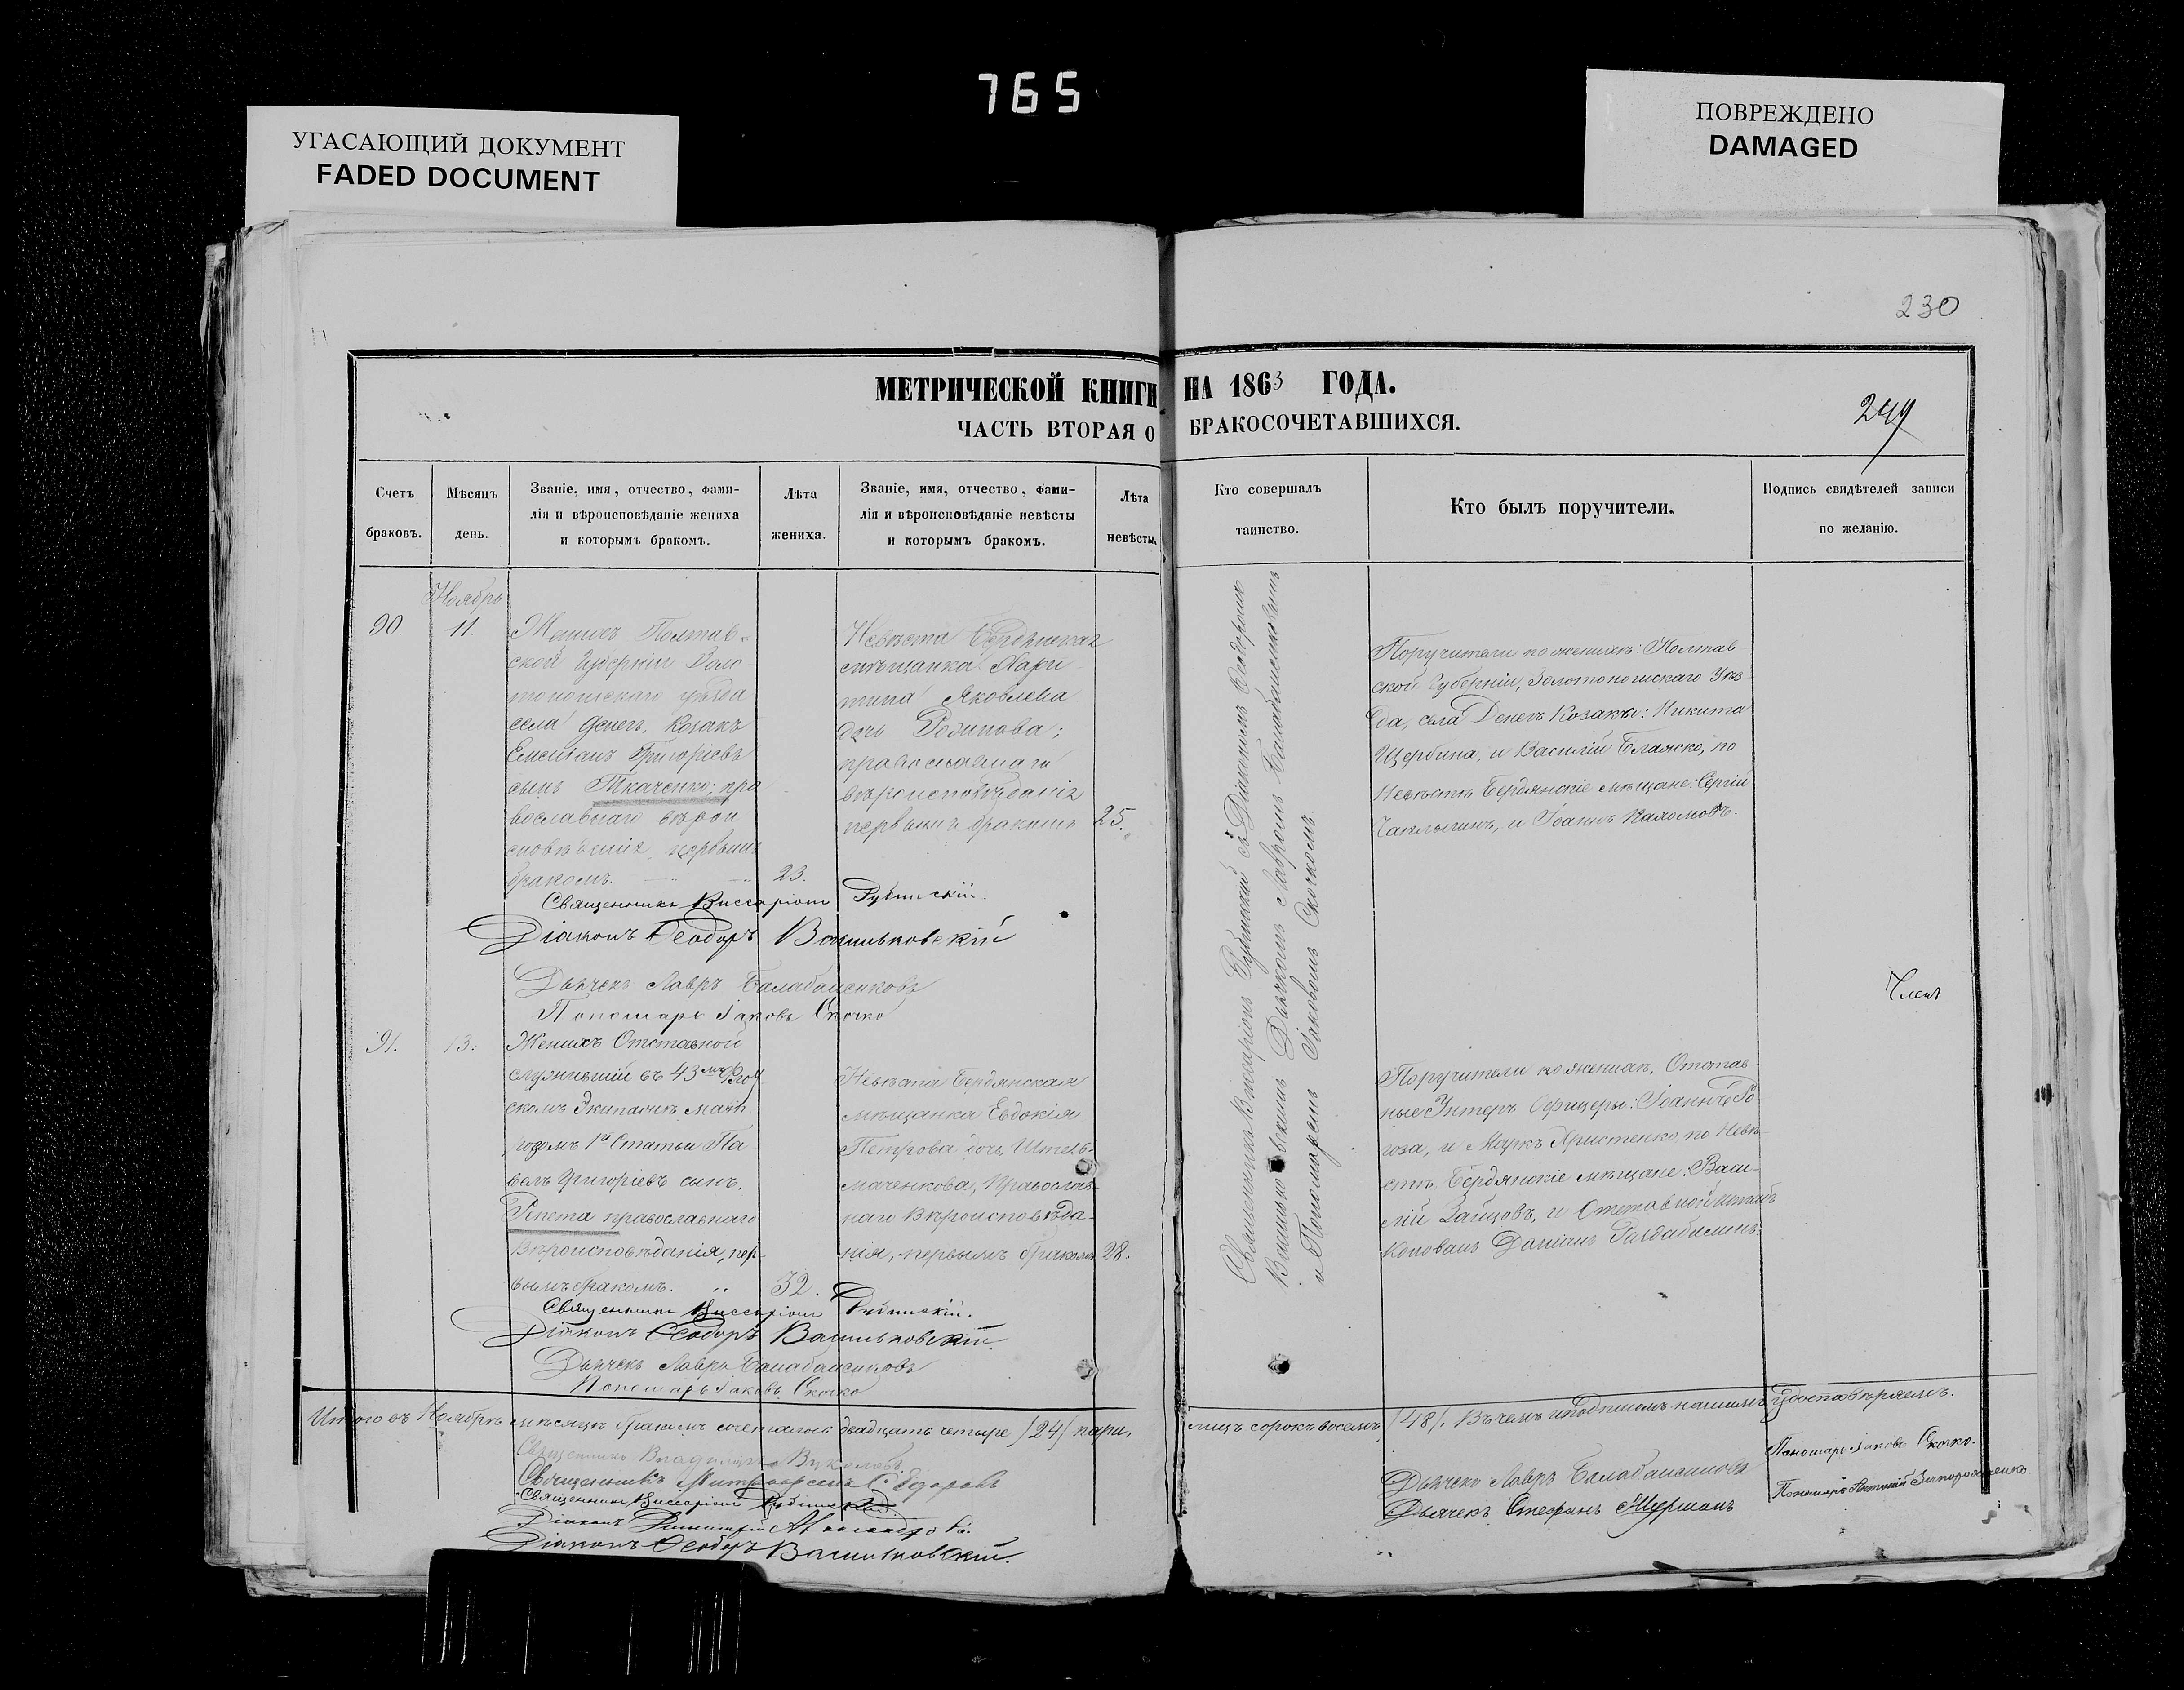 765
УГАСАЮЩИЙ ДОКУМЕНТ
FADED DOCUMENT
ПОВРЕЖДЕНО
DAMAGED
230
МЕТРИЧЕСКОЙ КНИГИ НА 1863 ГОДА.
ЧАСТЬ ВТОРАЯ О БРАКОСОЧЕТАВШИХСЯ.
249
Счетъ
браковъ.
Мѣсяцъ
день.
Званіе, имя, отчество, фами-
лія и вѣроисповѣданіе жениха
и которымъ бракомъ.
Лѣта
жениха.
Званіе, имя, отчество, фами-
лія и вѣроисповѣданіе невѣсты
и которымъ бракомъ.
Лѣта
невѣсты.
Кто совершалъ
таинство.
Кто былъ поручители.
Подпись свидѣтелей записи
по желанію.
Ноябрь
90.
11.
Женихъ Полтав-
ской Губерніи Золо-
тоношскаго уѣзда
села Денегъ, Козакъ
Григоріевъ
сынъ Ткаченко; пра
вославнаго вѣрои
сповѣданія, первымъ
бракомъ.
23.
Невѣста Бердянская
мѣщанка Хари
тина Яковлева
дочь Родинова;
православнаго
вѣроисповѣданія
первымъ бракомъ
25.
Священникъ Виссаріонъ Рубинскій.
Діаконъ Ѳеодоръ Васильковскій
Дьячекъ Лавръ Балабаненковъ
Пономарь Іаковъ Скочко
Священникъ Виссаріонъ Рубинскій съ Діакономъ Ѳеодоромъ
Васильковскимъ Дьячкомъ Лавромъ Балабаненковымъ
и Пономаремъ Іаковомъ Скочкомъ.
Поручители по женихѣ: Полтав
ской Губерніи, Золотоношскаго Уѣз
да, села Денегъ Козаки: Никита
Щербина, и Василій по
Невѣстѣ Бердянскіе мѣщане: Сергій
Чаплыгинъ, и Іоаннъ
Членъ
91.
13.
Женихъ Отставной
служившій въ 43мъ Флот
скомъ Экипажѣ матр
розомъ 1й Статьи Па
велъ Григоріевъ сынъ.
Репета православнаго
Вѣроисповѣданія, пер-
вымъ бракомъ.
32.
Невѣста Бердянская
мѣщанка Евдокія
Петрова дочь Штель-
маченкова, Православ-
наго Вѣроисповѣда-
нія, первымъ бракомъ
28.
Поручители по женихѣ, Отстав-
ные Унтеръ Офицеры: Іоаннъ Ро
гоза, и Маркъ Христенко, по Невѣ-
стѣ Бердянскіе мѣщане: Васи-
лій Зайцовъ, и Отставной
Коновалъ Даніилъ
Священникъ Виссаріонъ Рубинскій.
Діаконъ Ѳеодоръ Васильковскій.
Дьячекъ Лавръ Балабаненковъ
Пономарь Іаковъ Скочко
Итого въ Ноябрѣ мѣсяцѣ бракомъ сочеталось двадцать четыре /24/ пары, лицъ сорокъ восемь /48/. Въ чемъ и подписомъ нашимъ удостовѣряемъ.
Священникъ Владимиръ
Священникъ Митрофанъ Сѣдоровъ
Священникъ Виссаріонъ Рубинскій
Діаконъ Димитрій
Діаконъ Ѳеодоръ Васильковскій.
Дьячекъ Лавръ Балабаненковъ
Дьячекъ Стефанъ
Пономарь Іаковъ Скочко.
Пономарь Запорожченко